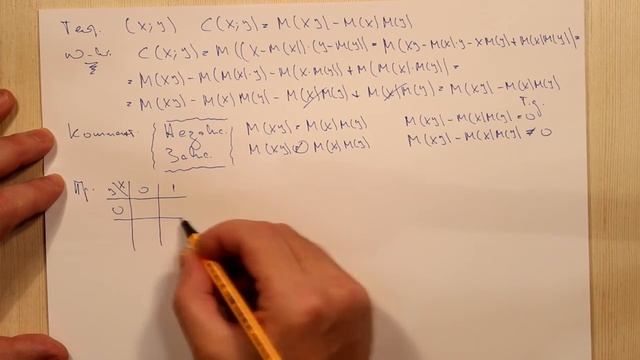 Теор. (X;Y) C(X;Y) = M(XY) - M(X)M(Y)
C(X;Y) = M((X-M(X))·(Y-M(Y))) = M(XY-M(X)·Y-XM(Y)+M(X)M(Y)) =
= M(XY) - M(M(X)·Y) - M(X·M(Y)) + M(M(X)·M(Y)) =
= M(XY) - M(X)M(Y) - M(X)M(Y) + M(X)M(Y) = M(XY) - M(X)M(Y)
Т.д.
Коммент. Независ. M(XY) = M(X)M(Y) M(XY) - M(X)M(Y) = 0
Завис. M(XY) ≠ M(X)M(Y) M(XY) - M(X)M(Y) ≠ 0
Пр. Y\X 0 1
0